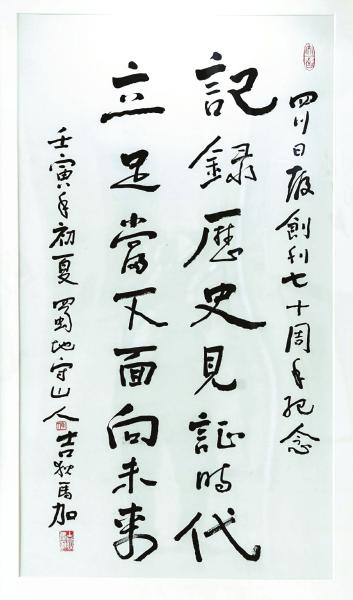 四川日报創刊七十周年纪念
記錄歷史見証時代
立足當下面向未來
壬寅年初夏蜀地守山人吉狄馬加